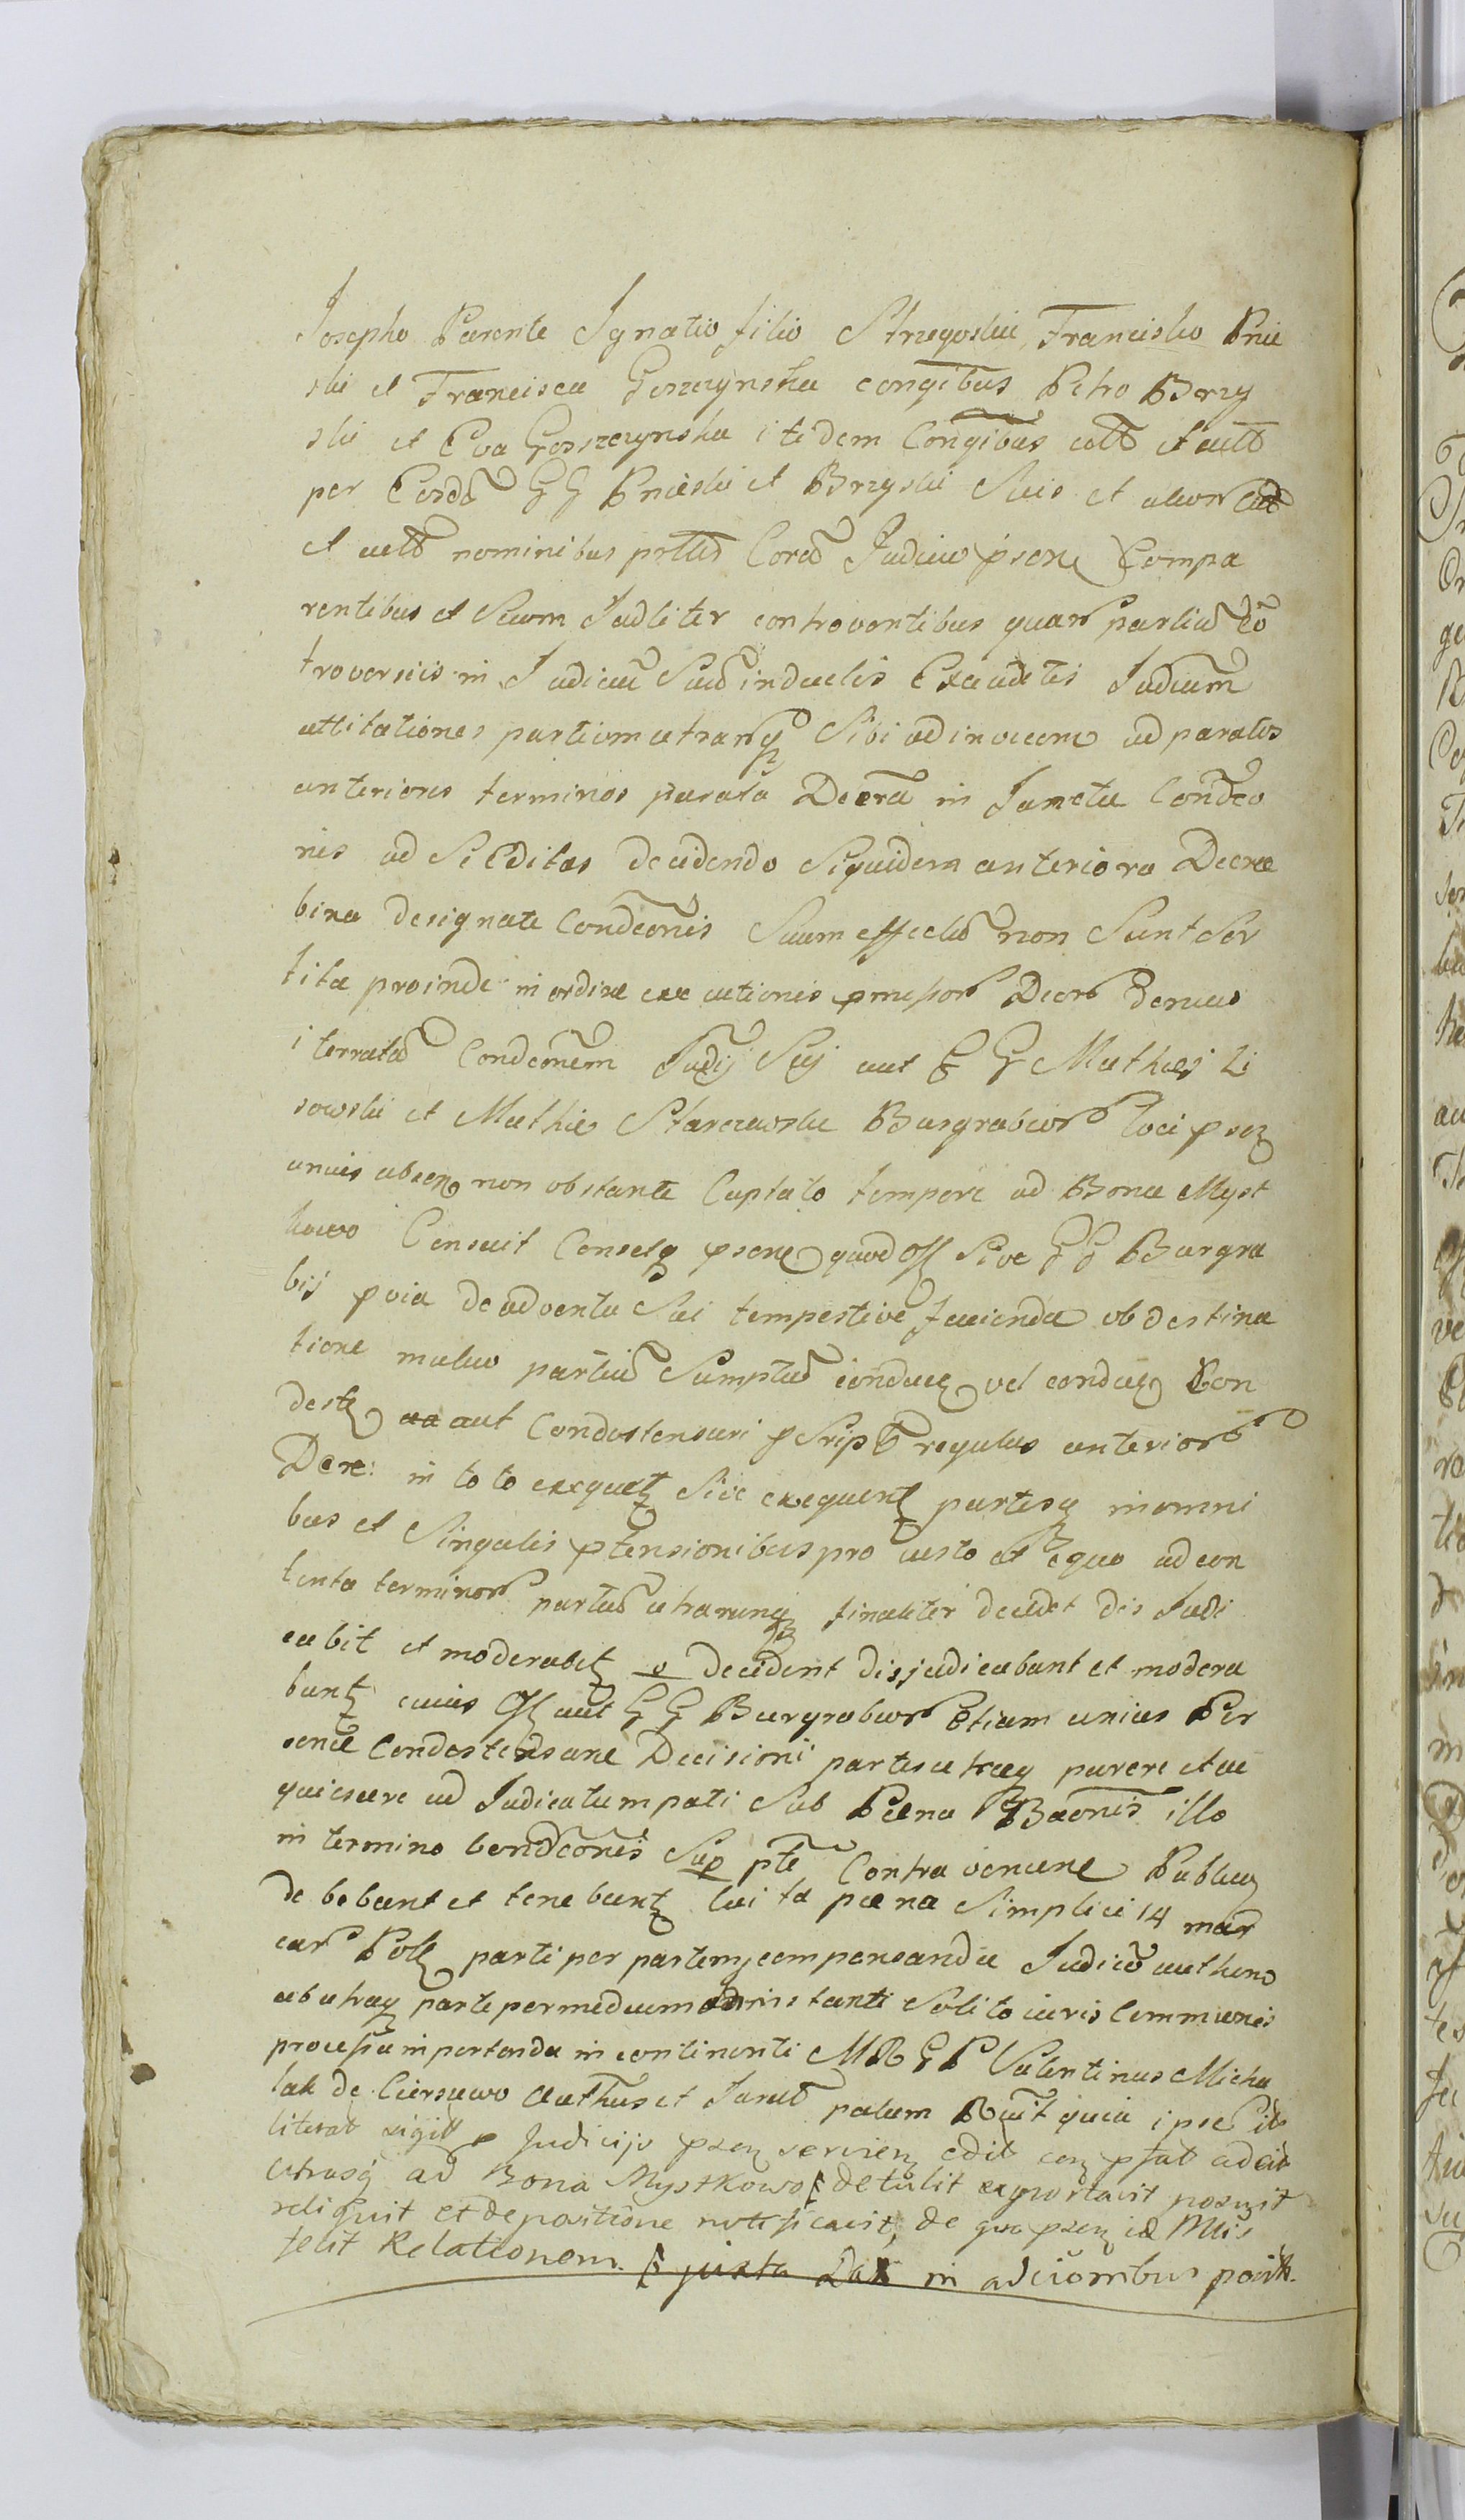 Josepho Parente Ignatio filio Strzegoskie, Francisko Pnie
ski et Francisca Goszczynska congibus Petro Brzy
ski et Eva Goszczynska itidem Congibus
per Eosd G G Pnieski et Brzyski Suis et
et nominibus Cora Judicio psene Compa
rentibus et Secum Judliter controventibus quar partiu Co
troversiis in Judiciu Suu inductis Exauditis Judicium
attitationes partium utrarq Sibi adinvicem ad paratos
anteriores terminos parata Decreta in Juncta Condeo
nis ad Si Editas decidendo Siquidem anteriora Decre
bina designate Condeonis Suum effectu non Sunt Sor
tita proinde in ordine executionis pmissor Decr denuo
iterrata Condeonem Judij Sui aut G G Mathiej Li
sowski et Mathie Starczewskie Burgrabior loci psez
unius absen non obstante Captato tempore ad Bona Myst
kowo Censuit Censetq psene quod Off Sive G G Burgra
bij pvia de adventu Sui tempestive facienda ob destina
tione mutuo partiu Sumptu conducen vel conducen Con
destz aut Condestensuri pSript regulas anterior
Decre: in toto exequetz Sive exequentz partesq in omni
bus et Singulis ptensionibus pro iusto et equo ad con
tenta terminor partiu utrarumq finaliter decidet dis Judi
cabit et moderabitz decident disjudicabunt et modera
buntz cuius Off aut G G Burgrabior Etiam unius Per
sone Condestensure Decisioni partes utraeq parere et ac
quiescere ad Judicatum pati Sub Paena Baonis illo
in termino Condeonis Sup pte Contraveniene Publican
debebunt et tenebuntz luita paena Simplici 14 mar
car Polz parti per partem compensanda Judicio autheno
ab utraq parte per medium instanti Solito iuris Communis
processu importanda in continenti M R G P Valentinus Micha
lak de Ciersewo Authus et Jurat palam Rcuit quia ipse
literat sigill Judicijo psen servien edit con pfat ad cit
utrasq ad Bona Mystkowo detulit exportavit posuit
reliquit et depositione notificavit, de quo psen id Mtis
fecit Relationem. juxta in adcionibus